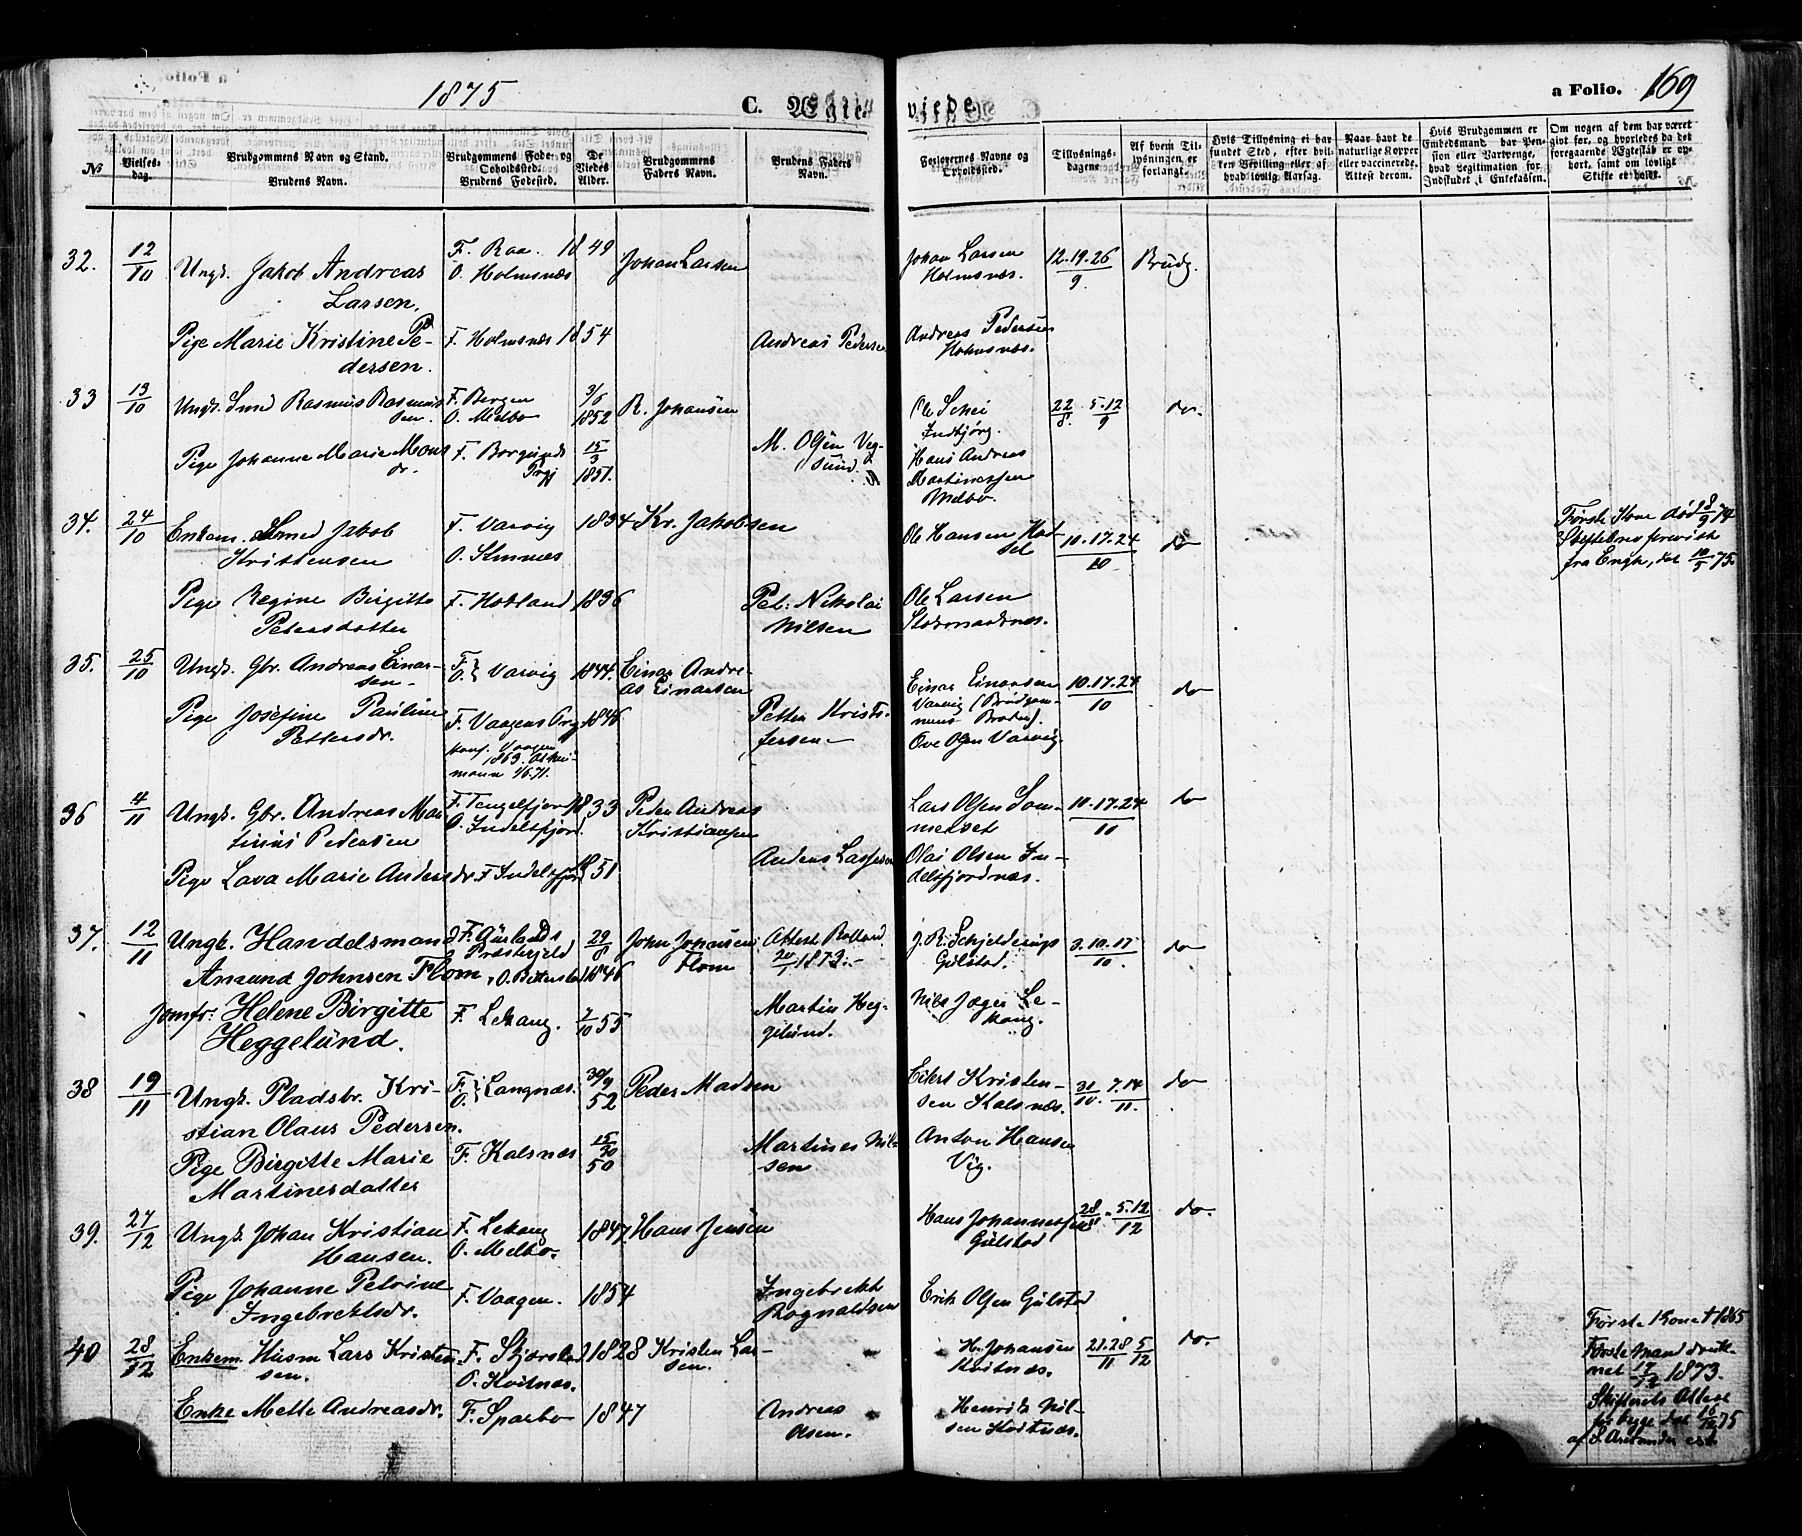 1875
C. Ægte-
viede
a Folio. 169
No
Vielses-
dag.
Brudgommens Navn og Stand.
Brudens Navn.
Brudgommens Føde- og
Opholdssted.
Brudens Fødested.
De
Viedes
Alder.
Brudgommens
Faders Navn.
Brudens Faders
Navn.
Forlovernes Navne og
Opholdssted.
Tillysnings-
dagene
Af hvem Til-
lysningen er
forlangt.
Hvis Tillysning ei har
fundet Sted, efter hvil-
ken Bevilling eller af
hvad lovlig Aarsag.
Naar havt de
naturlige Kopper
eller vaccinerede.
Attest derom.
Hvis Brudgommen er
Embedsmand, har Pen-
sion eller Vartpenge,
hvad Legitimation for
Indskudet i Enkekassen.
Om nogen af dem har været
gift før, og hvorledes da det
foregaaende Ægteskab er op-
hørt, samt om lovligt
Skifte er holdt.
32. 12/10 Ungk. Jakob Andreas
Larsen.
F. Raa. 1849
O. Holmsnæs
Johan Larsen
Johan Larsen
Holmsnæs.
12.19.26/9
Brudg.
Pige Marie Kristine Pe-
dersen.
F. Holmsnæs 1854
Andreas Pedersen
Andreas Pedersen
Holmsnæs.
33 13/10 Ungk. Smed Rasmus Rasmus-
sen.
F. Bergen
O. Melbo
3/6
1852
R. Johansen
Ole Schei
Indbjørg.
22/8. 5.12/9
do.
Pige Johanne Marie Mons-
dr.
F. Borgunds
Prgj
15/3
1851.
M. Olsen Veg-
sund
Hans Andreas
Martinussen
Melbo.
34. 24/10 Enkem. Smed Jakob
Kristensen
F. Varvig
O. Stennæs
1834
Kr. Jakobsen
Ole Hansen Had-
sel
10.17.24/10
do
Første Kone død 8/9 74
Skiftebrev forevist
fra Engh, dat 10/5 75.
Pige Regine Birgitte
Petersdatter
F. Hodland 1836
Pet. Nikolai
Nilsen
Ole Larsen
Stokmarknæs.
35. 25/10 Ungk. Gbr. Andreas Einar-
sen
F. O. } Varvig 1844.
Einar Andre-
as Einarsen
Einar Einarsen
Varvig (Brudgom-
mens Broder).
10.17.24/10
do
Pige Josefine Pauline
Pettersdr.
F. Vaagens Prgj 1846
konf. Vaagen
1863.
Petter Krist-
fersen
Ove Olsen Varvig
36 4/11 Ungk. Gbr. Andreas Mar-
tinus Pedersen
F. Tengelfjord 1833
O. Indelsfjord.
Peder Andreas
Kristiansen
Lars Olsen Som-
merset
10.17.24/10
do
Pige Lava Marie Andersdr.
F. Indelsfjord 1851
Anders Lassesen
Olai Olsen In-
delsfjordnæs.
37. 12/11 Ungk. Handelsmand
Amund Johnsen Flom
F. Aurlands
Præstegjeld
29/8
1846
John Johnsen
Flom
Attest
20/1 1873.
J. R. Schjelderup
Gulstad.
3.10.17/10.
do
Jomfr. Helene Birgitte
Heggelund.
F. Lekang.
7/10 55
Martin Heg-
gelund.
Nils Jæger Le-
kang.
38 19/11 Ungk. Pladsbr. Kri-
stian Olaus Pedersen.
F. O. } Langnæs.
30/9
52
Peder Madsen
Eilert Kristen-
sen Kalsnæs.
31/10. 7.14/11.
do
Pige Birgitte Marie
Martinesdatter
F. Kalsnæs
15/10
50
Martines Nil-
sen
Anton Hansen
Vig.
39. 27/12 Ungk. Johan Kristian
Hansen.
F. Lekang
O. Melbo.
1847.
Hans Jensen
Hans Johannessen
Gulstad
28/11. 5.12/12
do.
Pige Johanne Petrine
Ingebrektsdr.
F. Vaagen. 1854
Ingebrekt
Rognaldsen
Erik Olsen Gulstad
40 28/12 Enkem. Husm Lars Kristen-
sen.
F. Skjærstad
O. Kvitnæs.
1828
Kristen Lar-
sen.
H. Johansen
Kvitnæs.
21.28/11 5/12
do.
Første Kone † 1865
Første Mand druk-
net 17/12 1873.
Skifterets Attest
dat 16/12 75
Enke Mette Andreasdr.
F. Sparbo 1847
Andreas
Olsen.
Henrik Nil-
sen Kvitnæs.